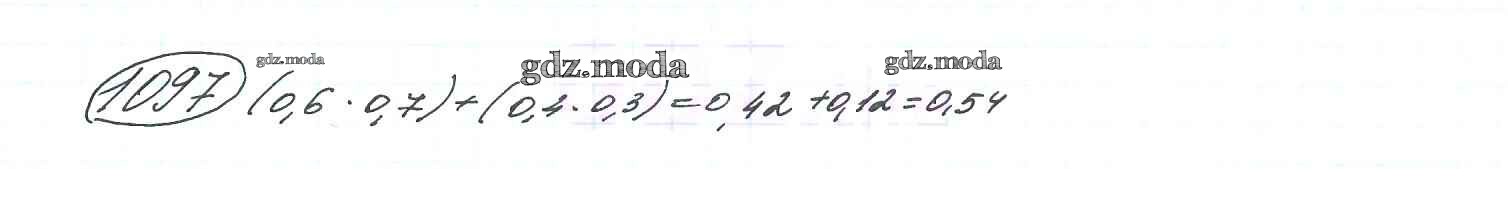 gdz.moda gdz.moda gdz.moda
1097 (0,6 · 0,7) + (0,4 · 0,3) = 0,42 + 0,12 = 0,54